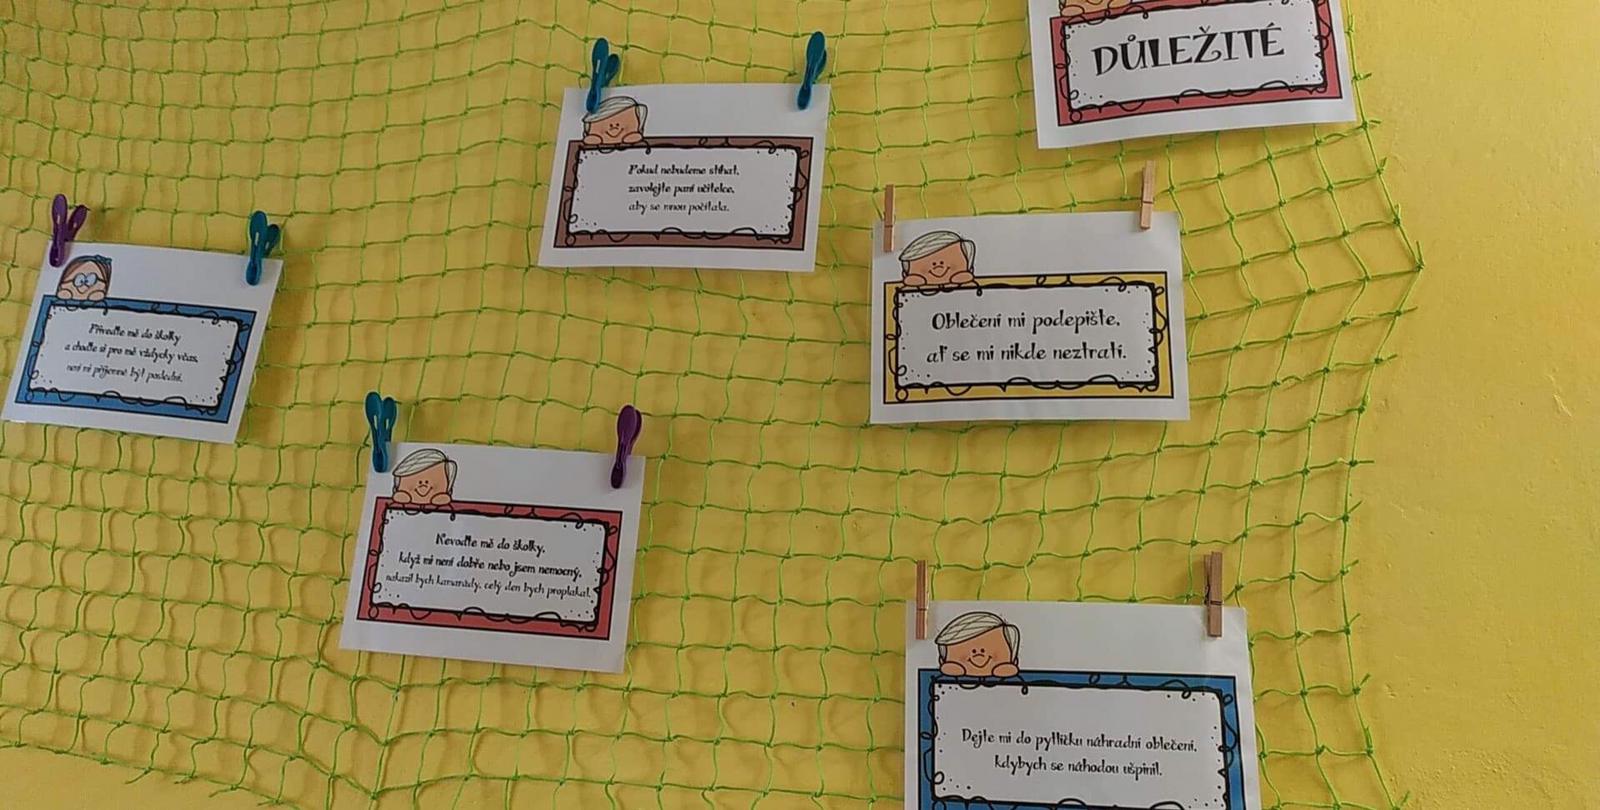 DŮLEŽITÉ
Pokud nebudeme stíhat,
zavolejte paní učitelce,
aby se mnou počítala.
Oblečení mi podepište,
ať se mi nikde neztratí.
Přiveďte mě do školky
a choďte si pro mě vždycky včas,
není mi příjemné být poslední.
Nevoďte mě do školky,
když mi není dobře nebo jsem nemocný,
nakazil bych kamarády, celý den bych proplakal.
Dejte mi do pytlíčku náhradní oblečení,
kdybych se náhodou ušpinil.